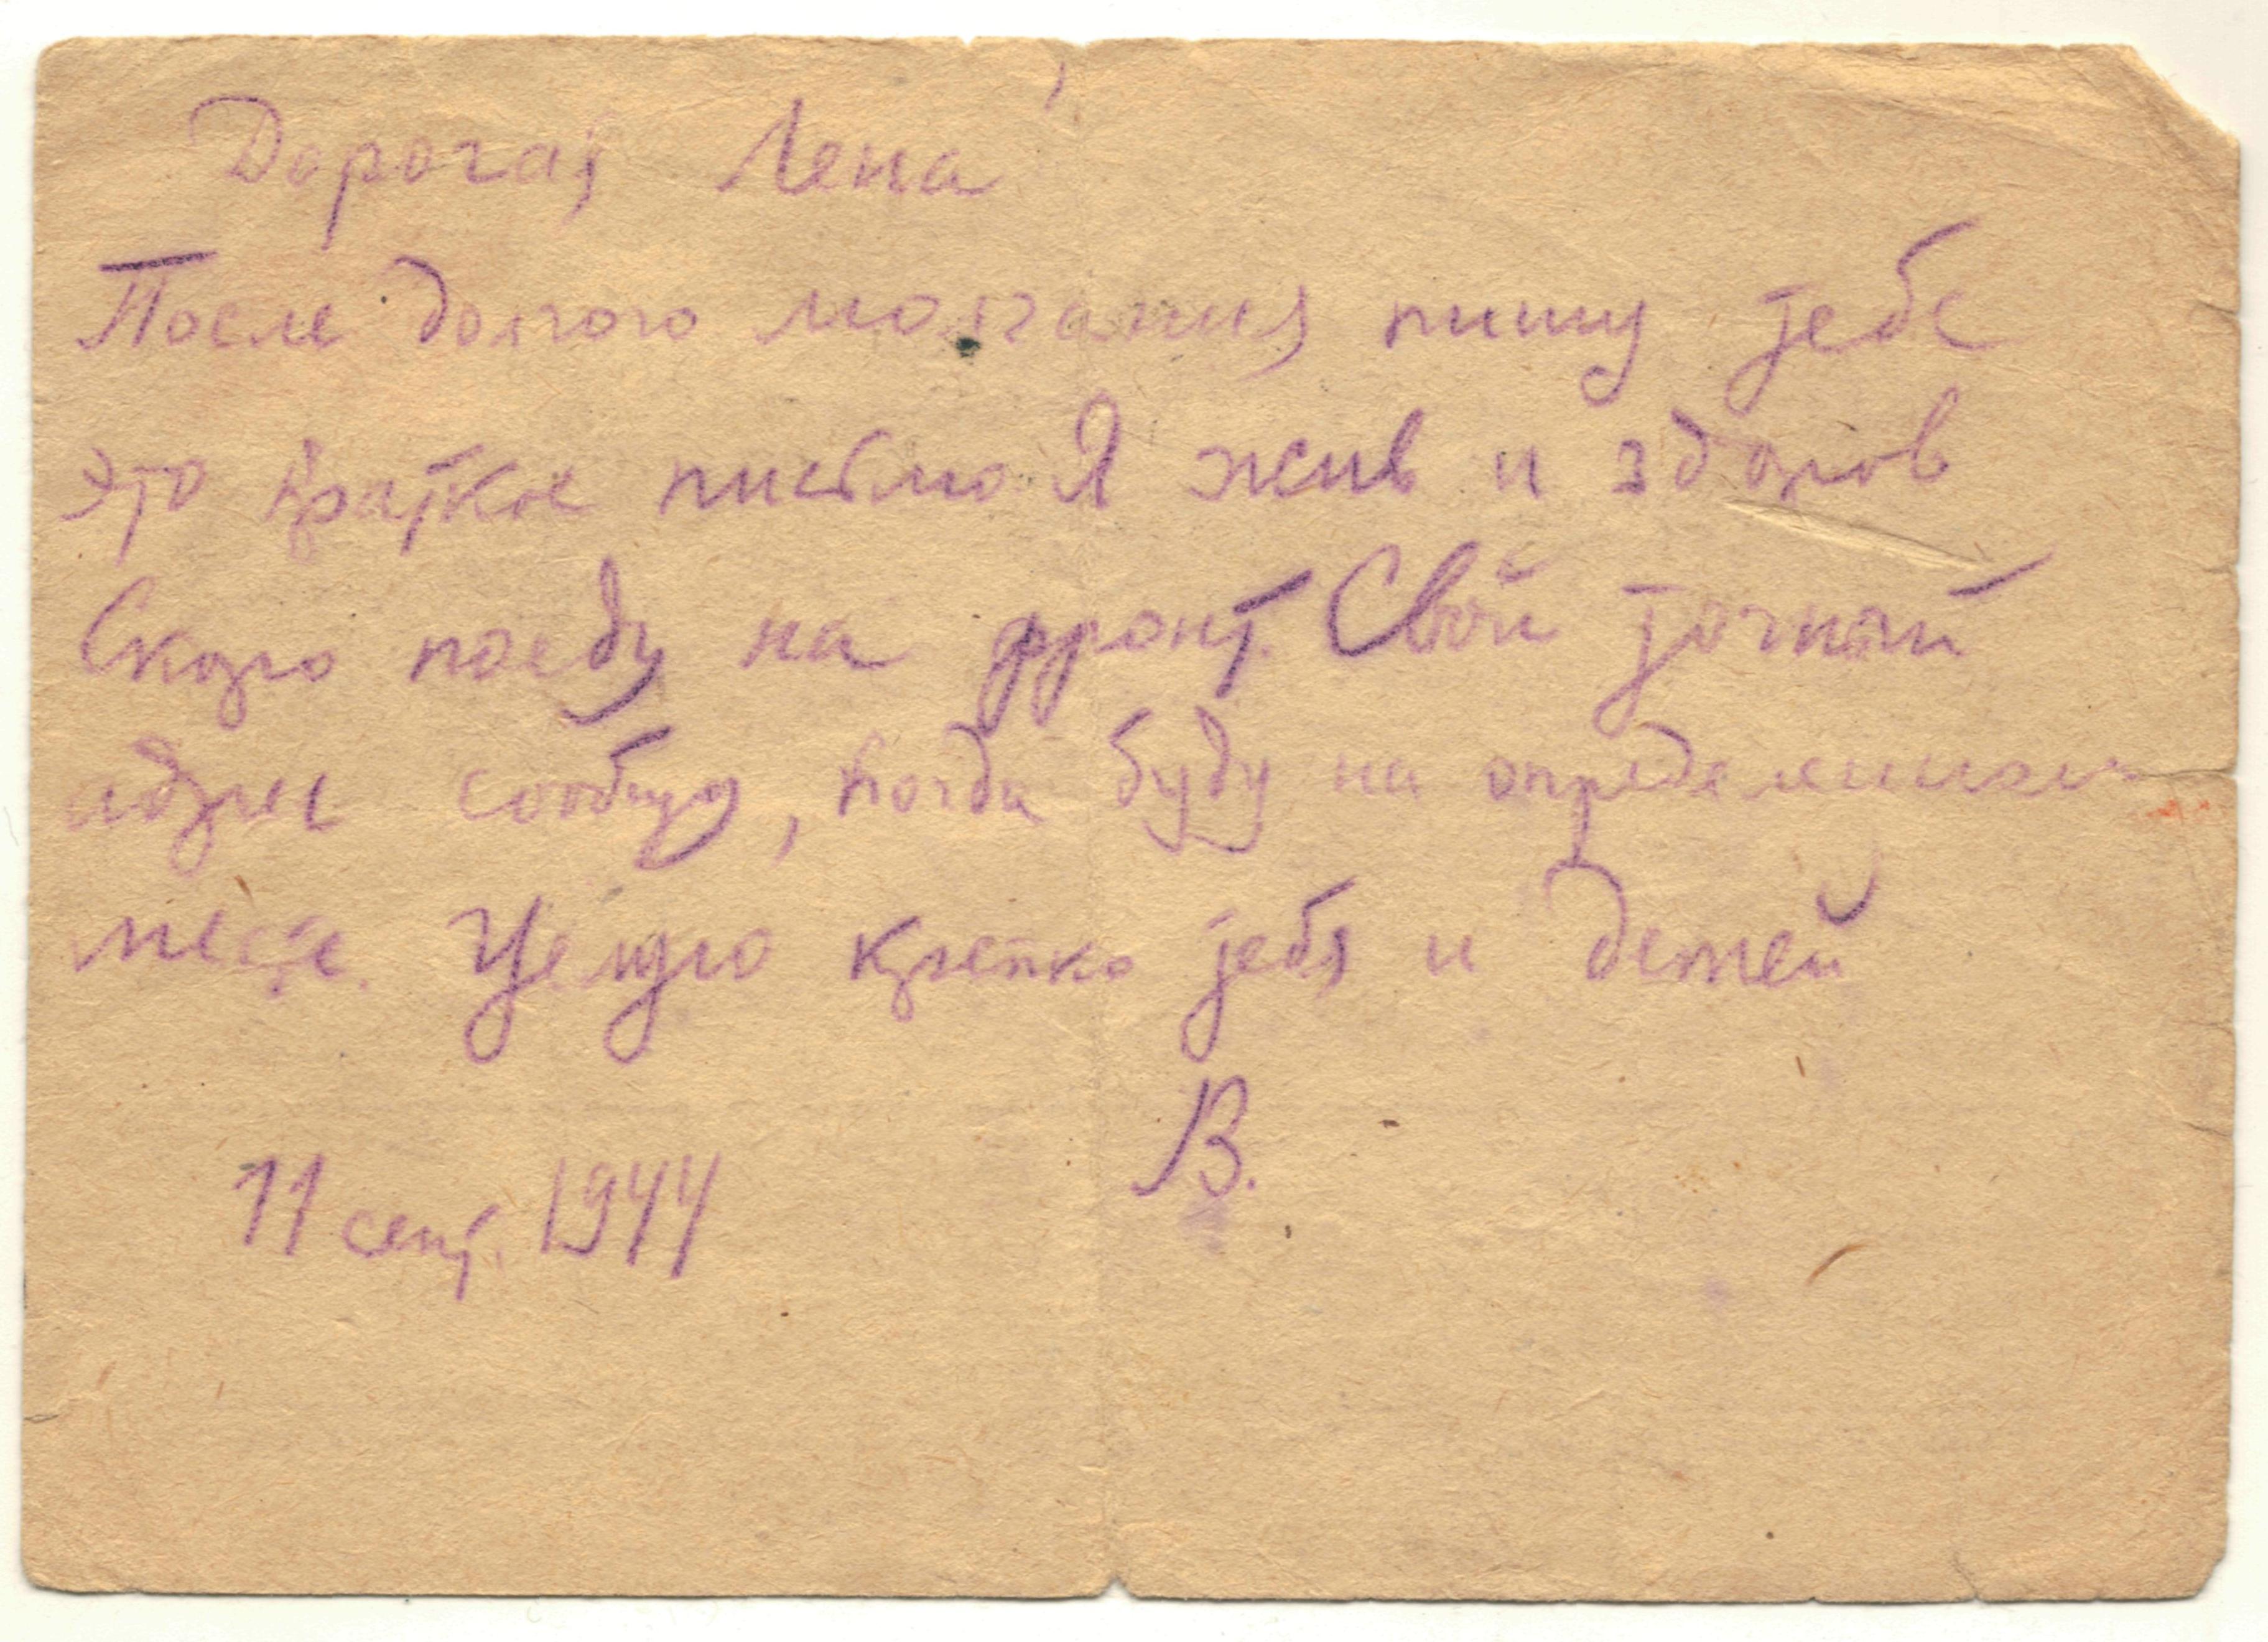 Дорогая Лена!
После долгого молчания пишу тебе
это краткое письмо. Я жив и здоров
Скоро поеду на фронт. Свой точный
адрес сообщу, когда буду на определенном
месте. Целую крепко тебя и детей
В.
11 сент. 1944